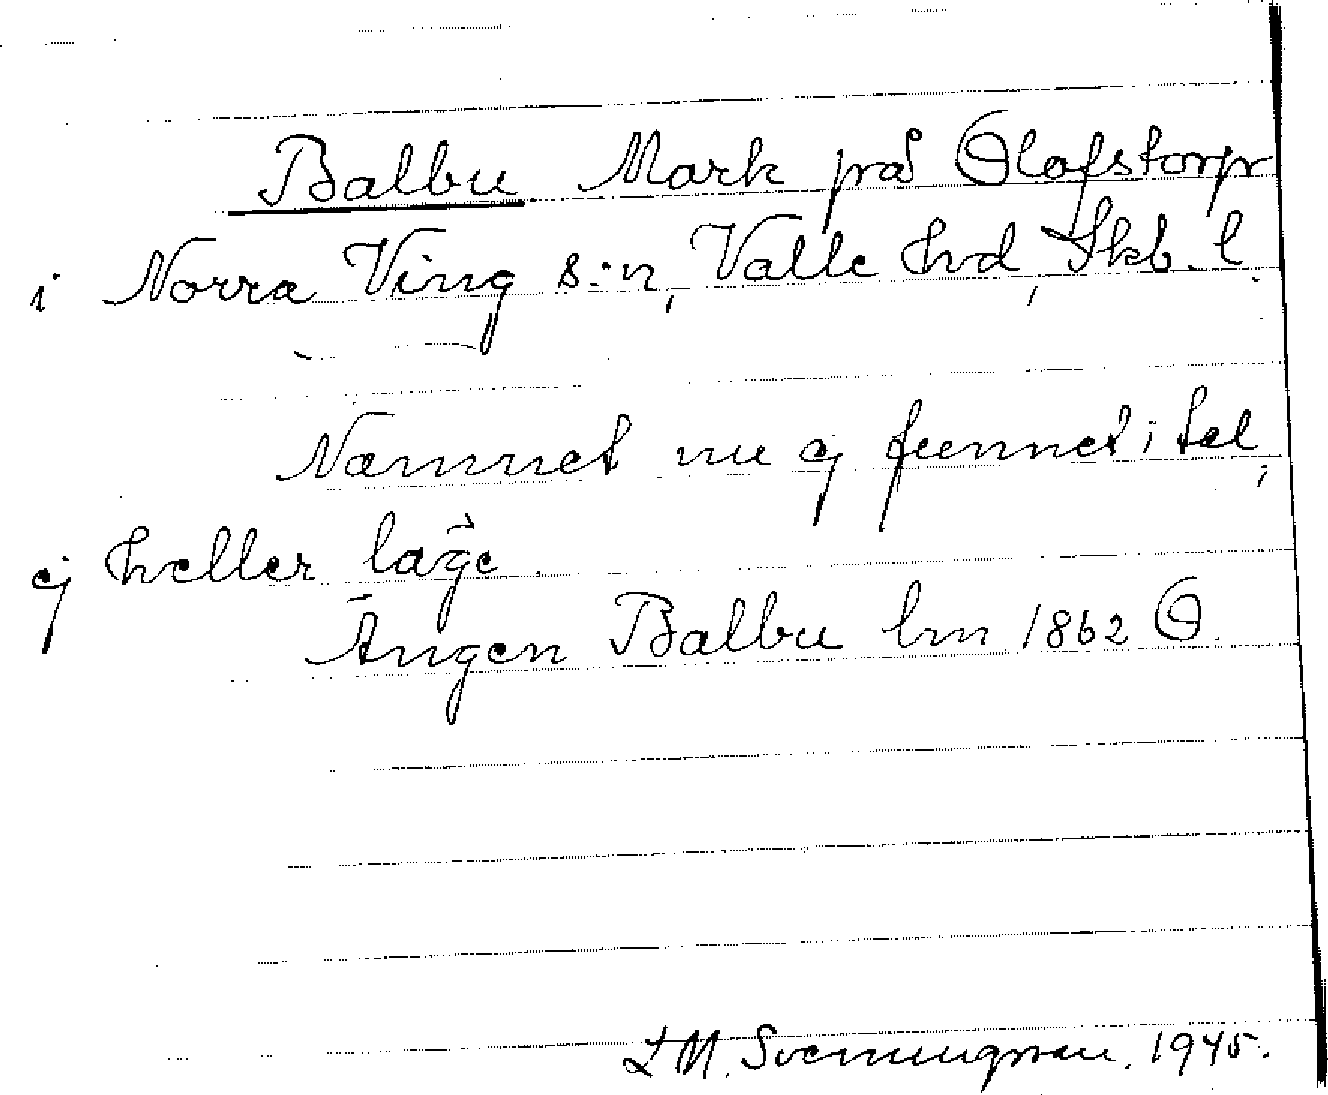 Balbu Mark på Olofstorp
i Norra Ving s:n, Valle hd, Skb. l.
Namnet nu ej funnet i tal,
ej heller läge.
Ängen Balbu lm 1862 O.
L M. Svenungsson. 1945.